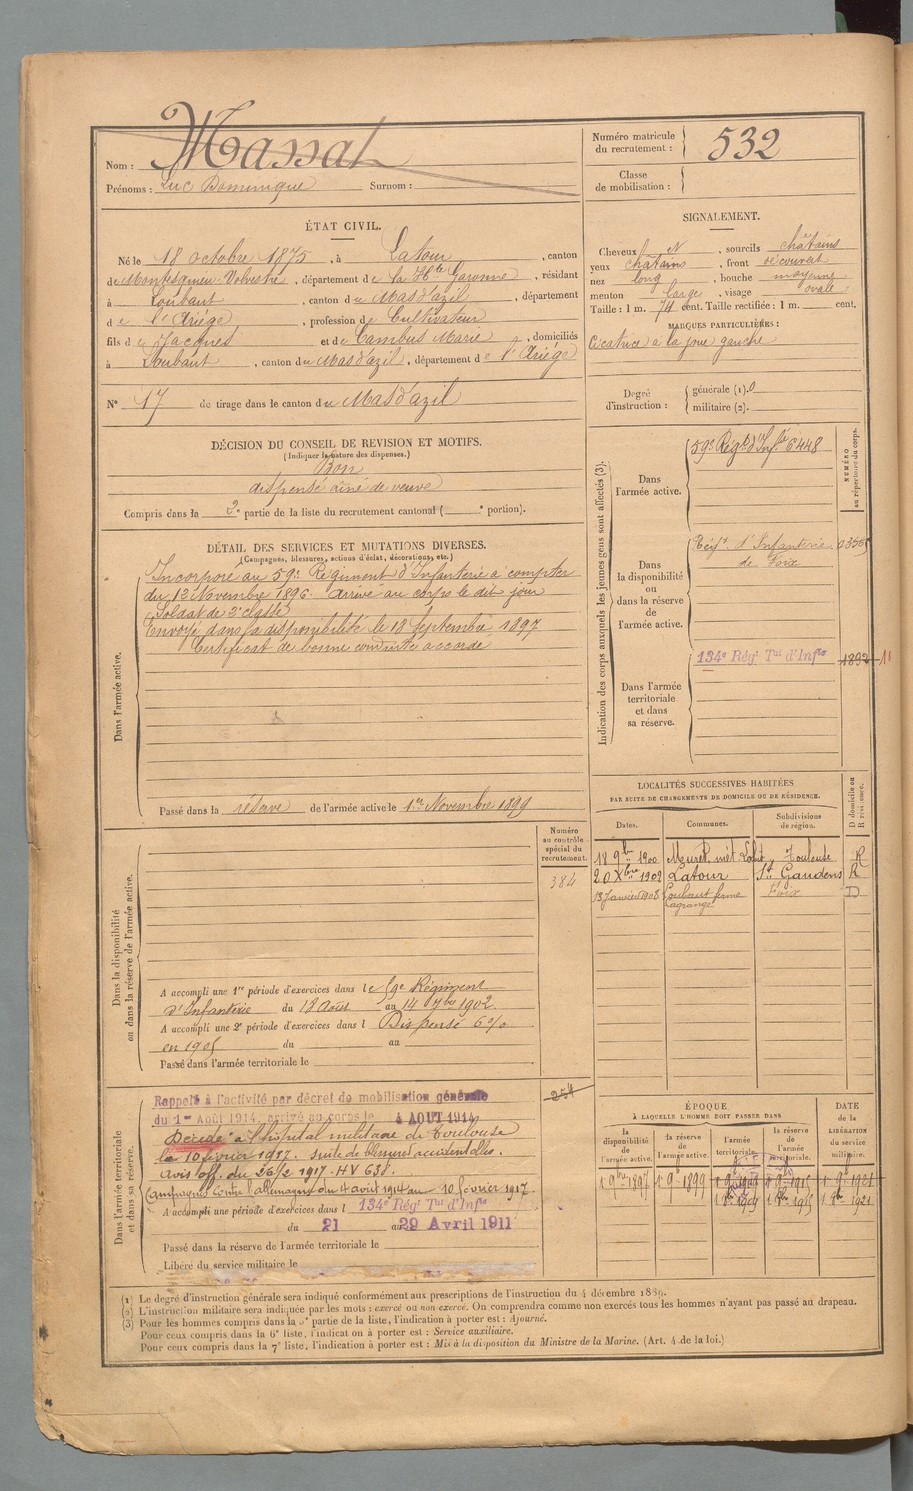 Nom : Massat
Prénoms : Luc Dominique Surnom :
Numéro matricule du recrutement : 532
Classe de mobilisation :
ÉTAT CIVIL.
Né le 18 Octobre 1875, à Latour, canton
de Montesquieu-Volvestre, département de la Hte Garonne, résidant
à Loubaut, canton du Mas d'azil, département
de l'Ariège, profession de Cultivateur
fils de Jacques et de Cambus Marie, domiciliés
à Loubaut, canton du Mas d'azil, département de l'Ariège
N° 17 de tirage dans le canton du Mas d'azil
SIGNALEMENT.
Cheveux et, sourcils châtains
yeux châtains, front découvert
nez long, bouche moyenne
menton large, visage ovale
Taille : 1 m. 74 cent. Taille rectifiée : 1 m. cent.
MARQUES PARTICULIÈRES :
Cicatrice à la joue gauche
Degré d'instruction :
générale (1). 0
militaire (2).
DÉCISION DU CONSEIL DE REVISION ET MOTIFS.
(Indiquer la nature des dispenses.)
Bon
dispensé aîné de veuve
Compris dans la 2e partie de la liste du recrutement cantonal ( e portion).
DÉTAIL DES SERVICES ET MUTATIONS DIVERSES.
(Campagnes, blessures, actions d'éclat, décorations, etc.)
Dans l'armée active.
Incorporé au 59e Régiment d'Infanterie à compter
du 12 Novembre 1896. Arrivé au corps le dit jour
Soldat de 2e classe
Envoyé dans la disponibilité le 18 Septembre 1897
Certificat de bonne conduite accordé
Passé dans la réserve de l'armée active le 1er Novembre 1899
Indication des corps auxquels les jeunes gens sont affectés (3).
NUMÉRO au répertoire du corps.
Dans l'armée active.
59e Régt d'Infie 6448
Dans la disponibilité ou dans la réserve de l'armée active.
Régt d'Infanterie
de Foix
Dans l'armée territoriale et dans sa réserve.
134e Régt Tal d'Infie 1892
LOCALITÉS SUCCESSIVES HABITÉES
PAR SUITE DE CHANGEMENTS DE DOMICILE OU DE RÉSIDENCE.
D domicile ou R résidence.
Dates. Communes. Subdivisions de région.
18 9bre 1900 Muret Toulouse R
20 Xbre 1902 Latour St Gaudens R
13 Janvier 1908 Loubaut ferme Lagrange Foix D
Numéro au contrôle spécial du recrutement.
384
Dans la disponibilité ou dans la réserve de l'armée active.
A accompli une 1re période d'exercices dans le 59e Régiment
d'Infanterie du 18 Août au 14 7bre 1902
A accompli une 2e période d'exercices dans l Dispensé 6%
en 1905 du au
Passé dans l'armée territoriale le
Dans l'armée territoriale et dans sa réserve.
Rappelé à l'activité par décret de mobilisation générale
du 1er Août 1914, arrivé au corps le 4 AOUT 1914
Décédé à l'hôpital militaire de Toulouse
le 10 février 1917. Suite de blessures accidentelles.
avis off. du 26/2 1917. HV 638.
Campagne contre l'allemagne du 4 août 1914 au 10 février 1917
A accompli une période d'exercices dans l 134e Régt Tal d'Infie
du 21 au 29 Avril 1911
Passé dans la réserve de l'armée territoriale le
Libéré du service militaire le
254
ÉPOQUE
À LAQUELLE L'HOMME DOIT PASSER DANS
DATE de la LIBÉRATION du service militaire.
la disponibilité de l'armée active.
la réserve de l'armée active.
l'armée territoriale.
la réserve de l'armée territoriale.
1 9bre 1897 1 9 1899 1 9 1909 1 9 1915 1 9 1921
1 1909 1 1915 1 1921
(1) Le degré d'instruction générale sera indiqué conformément aux prescriptions de l'instruction du 4 décembre 1889.
(2) L'instruction militaire sera indiquée par les mots : exercé ou non exercé. On comprendra comme non exercés tous les hommes n'ayant pas passé au drapeau.
(3) Pour les hommes compris dans la 5e partie de la liste, l'indication à porter est : Ajourné.
Pour ceux compris dans la 6e liste, l'indication à porter est : Service auxiliaire.
Pour ceux compris dans la 7e liste, l'indication à porter est : Mis à la disposition du Ministre de la Marine. (Art. 4 de la loi.)